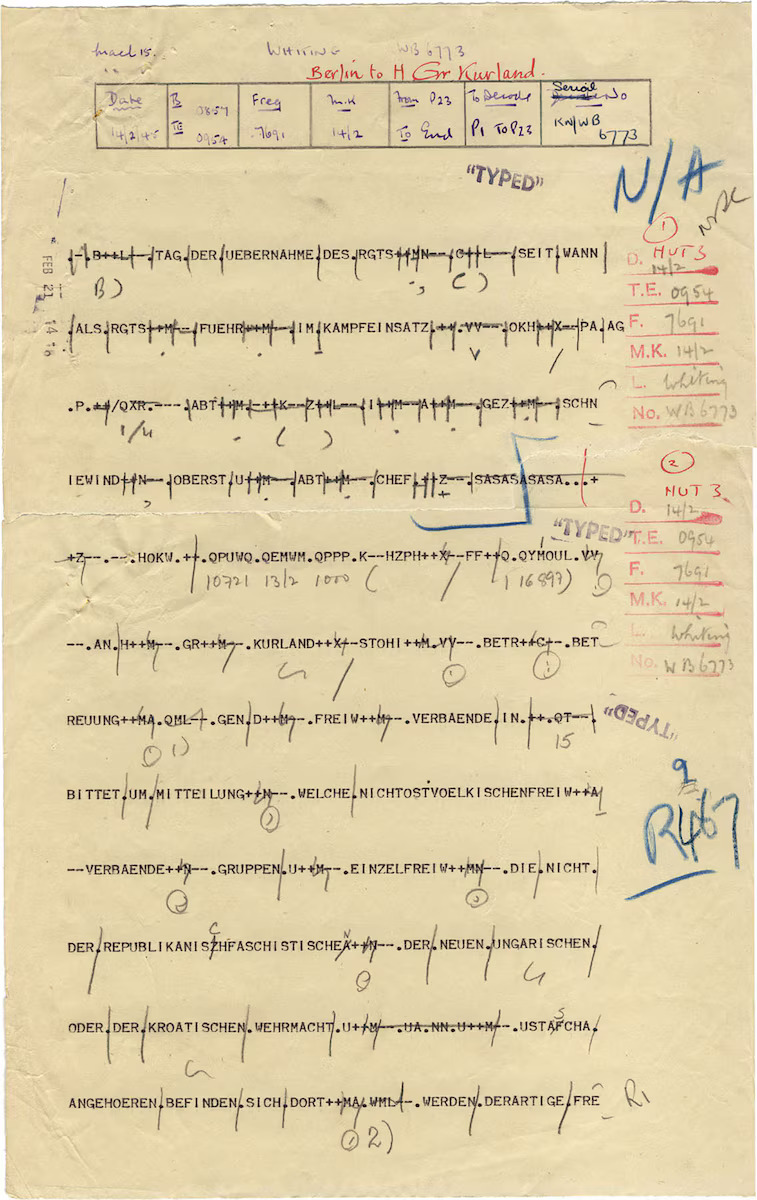 WHITING WB 6773
Berlin to H Gr Kurland.
Date B 0857 Freq M.K From P23 To Decode Serial No
14/2/45 TE 0954 7691 14/2 To End P1 To P23 KN/WB 6773
"TYPED"
N/A
1
D. NUT 3
14/2
T.E. 0954
F. 7691
M.K. 14/2
L. Whiting
No. WB 6773
.-.B++L--.TAG.DER.UEBERNAHME.DES.RGTS++MN--.C++L--.SEIT.WANN
B) C)
.ALS.RGTS++M--.FUEHR++M--.IM.KAMPFEINSATZ.++.VV--.OKH++X--PA.AG
.P.++/QXR.---.ABT++M.-++K--Z++L--.I++M--A++M--.GEZ++M--.SCHN
1/4 ( )
IEWIND++N--.OBERST.U++M--.ABT++M--.CHEF.+++Z--.SASASASASA...+
2
NUT 3
D. 14/2
"TYPED"
T.E. 0954
F. 7691
M.K. 14/2
L. Whiting
No. WB 6773
+Z--.--.HOKW.++.QPUWQ.QEMWM.QPPP.K--HZPH++X--FF++Q.QYMOUL.VV
10721 13/2 1000 ( / 116897)
--.AN.H++M--.GR++M--.KURLAND++X--STOHI++M.VY--.BETR++C--.BET
REUUNG++MA.QML--.GEN.D++M--.FREIW++M--.VERBAENDE.IN.++.QT--.
1) 15
"TYPED"
BITTET.UM.MITTEILUNG++N--.WELCHE.NICHTOSTVOELKISCHENFREIW++A
9
R467
--VERBAENDE++N--.GRUPPEN.U++M--.EINZELFREIW++MN--.DIE.NICHT.
DER.REPUBLIKANISZHFASCHISTISCHEA++N--.DER.NEUEN.UNGARISCHEN.
ODER.DER.KROATISCHEN.WEHRMACHT.U++M--.UA.NN.U++M--.USTAFCHA.
ANGEHOEREN.BEFINDEN.SICH.DORT++MA.WML--.WERDEN.DERARTIGE.FRE
2)
R1